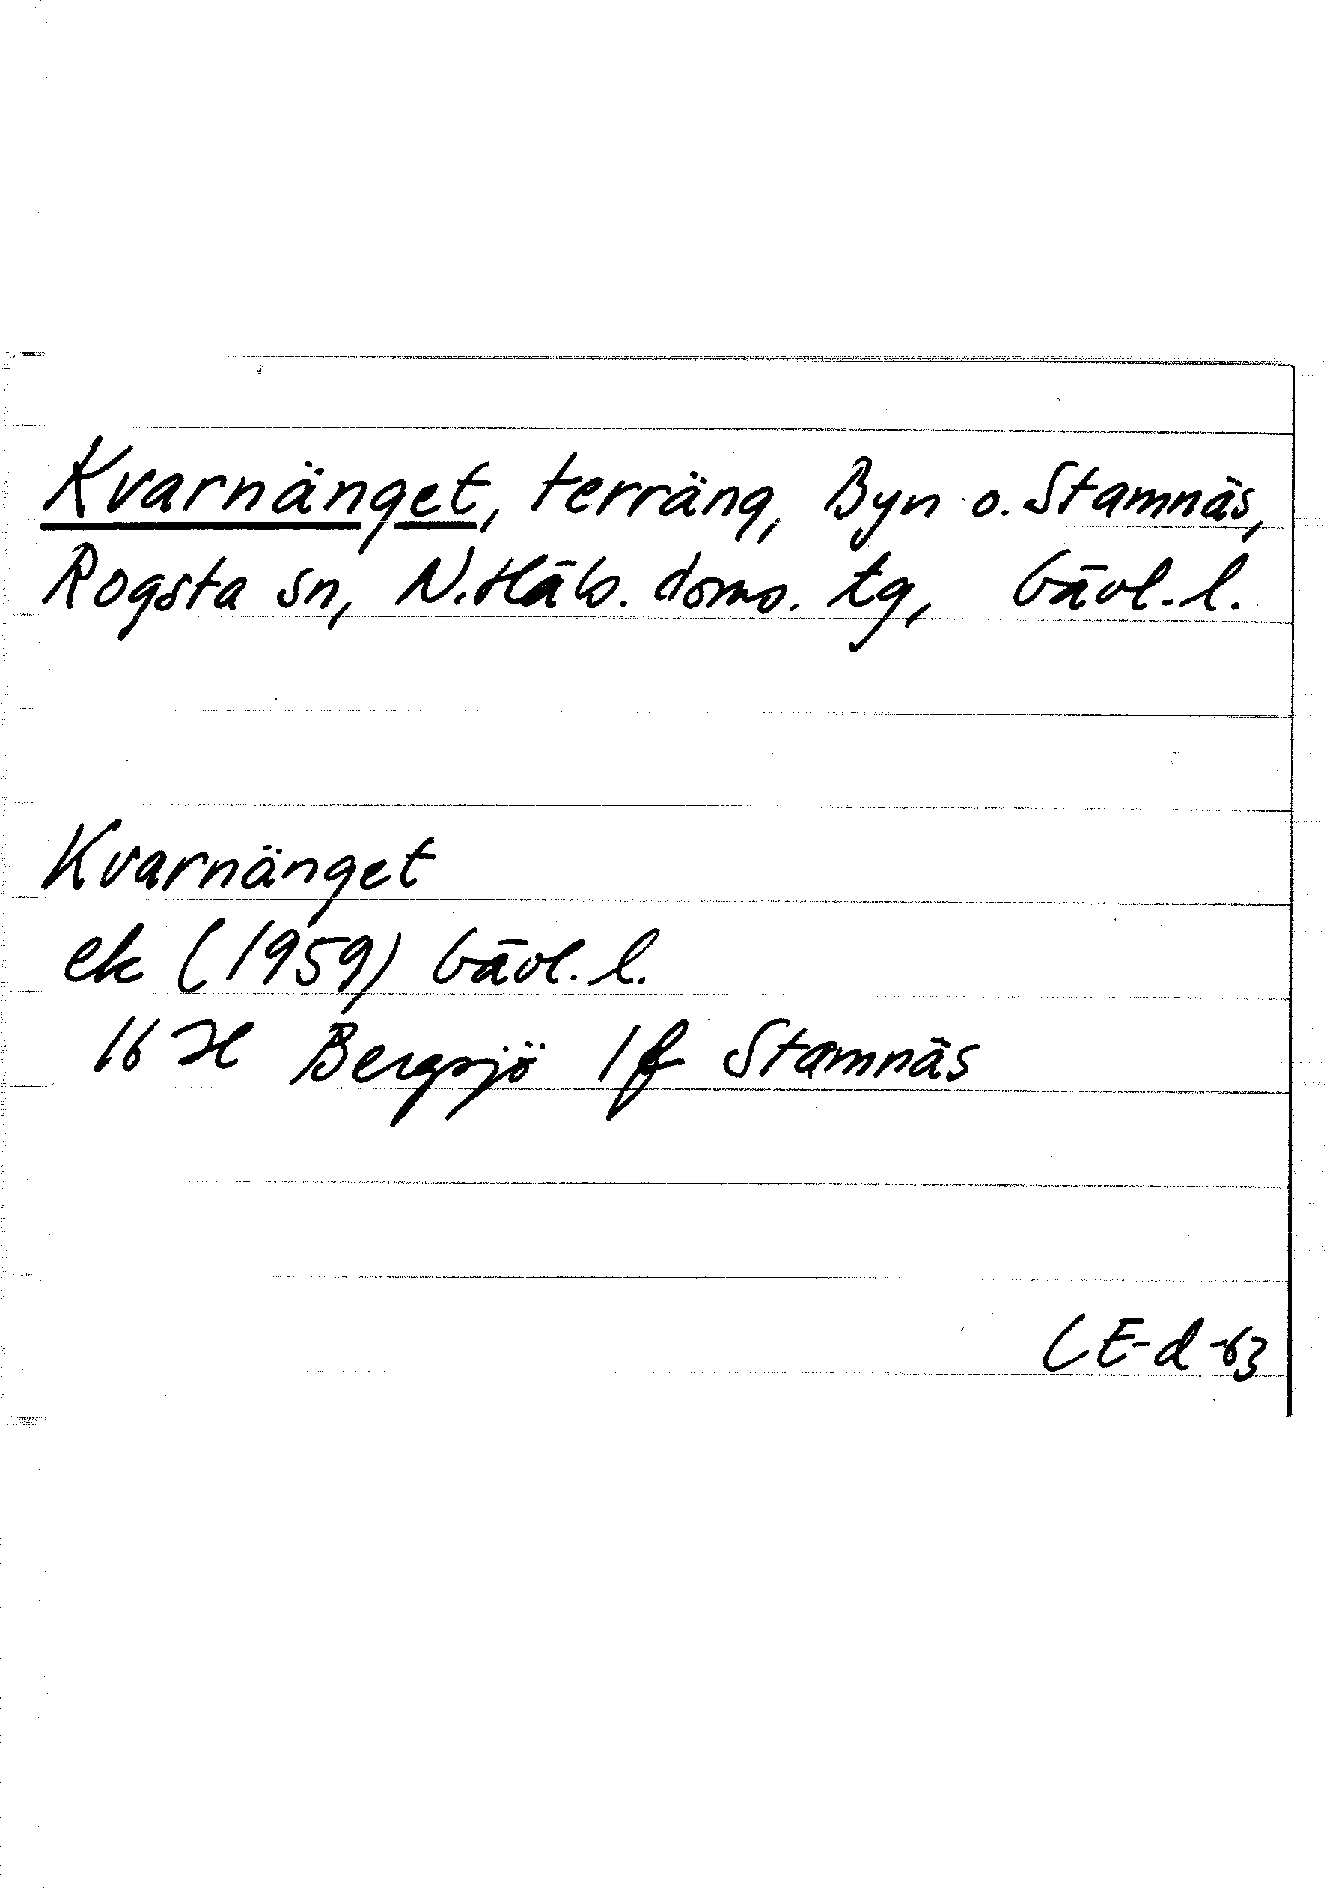 Kvarnänget, terräng, Byn o. Stamnäs,
Rogsta sn, N. Häls. doms. tg, Gävl. l.
Kvarnänget
ek (1959) Gävl. l.
16 H Bergsjö 1 f Stamnäs
CE-d -63